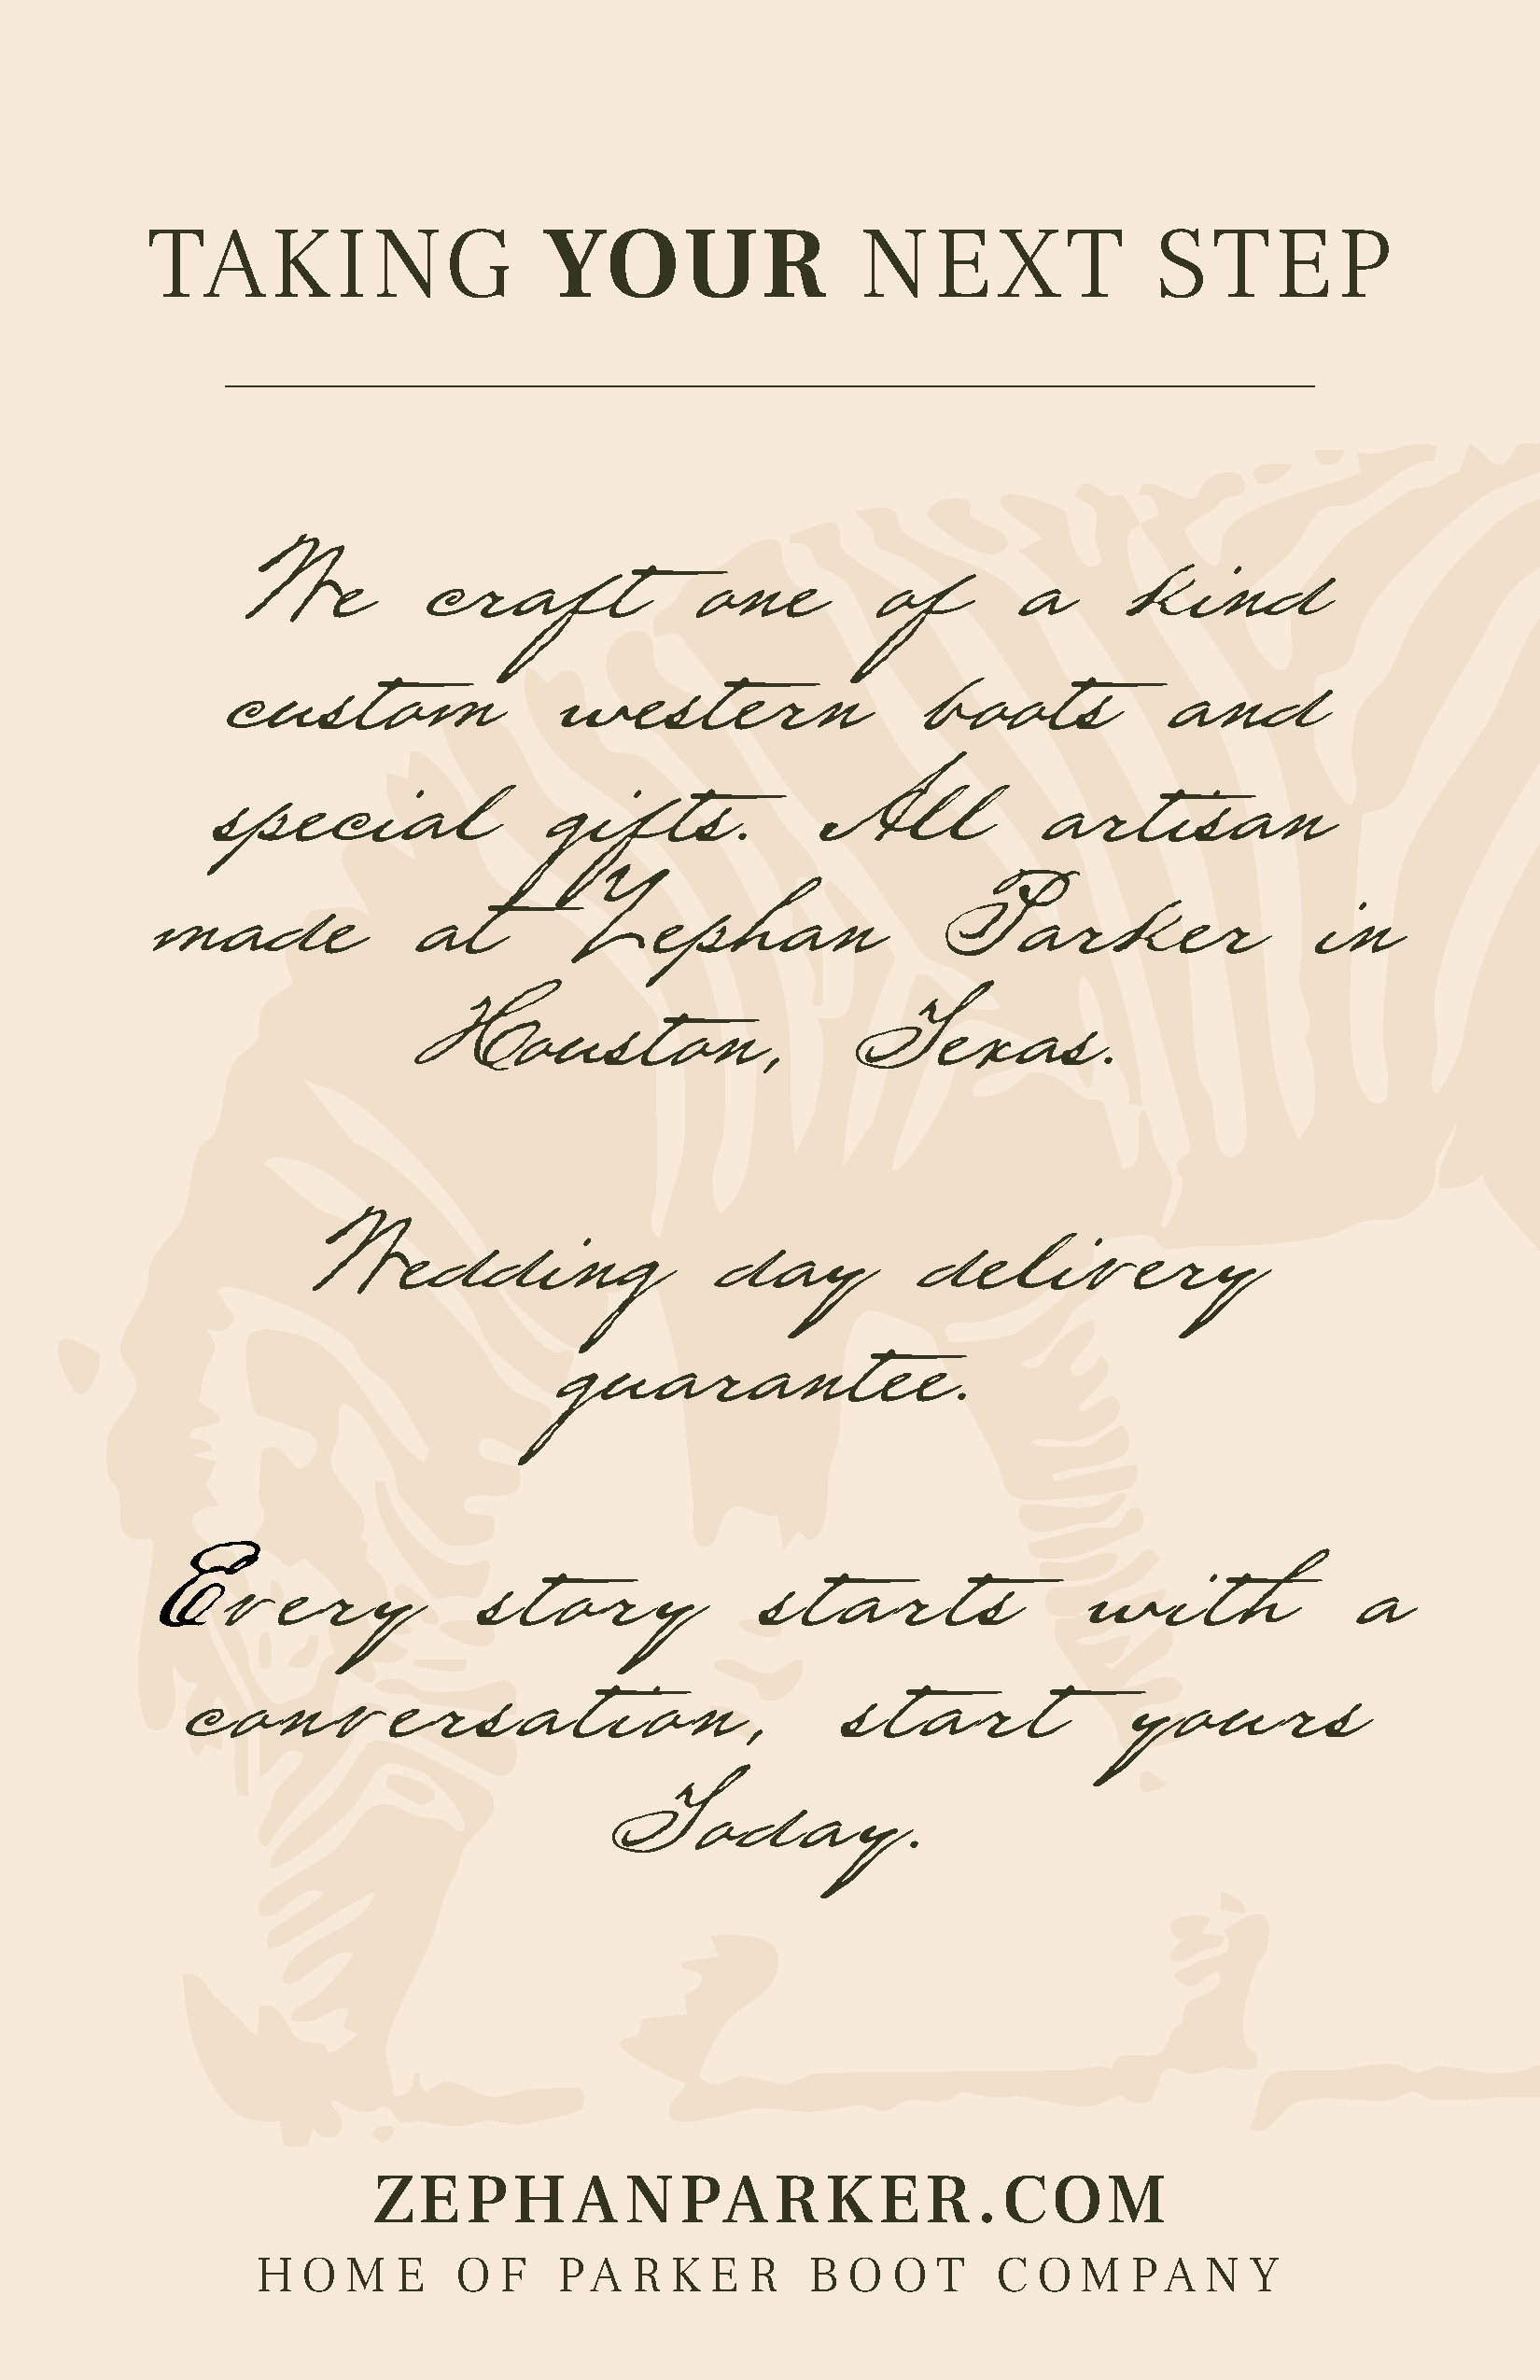 TAKING YOUR NEXT STEP
We craft one of a kind
custom western boots and
special gifts. All artisan
made at Zephan Parker in
Houston, Texas.
Wedding day delivery
guarantee.
Every story starts with a
conversation, start yours
Today.
ZEPHANPARKER.COM
HOME OF PARKER BOOT COMPANY